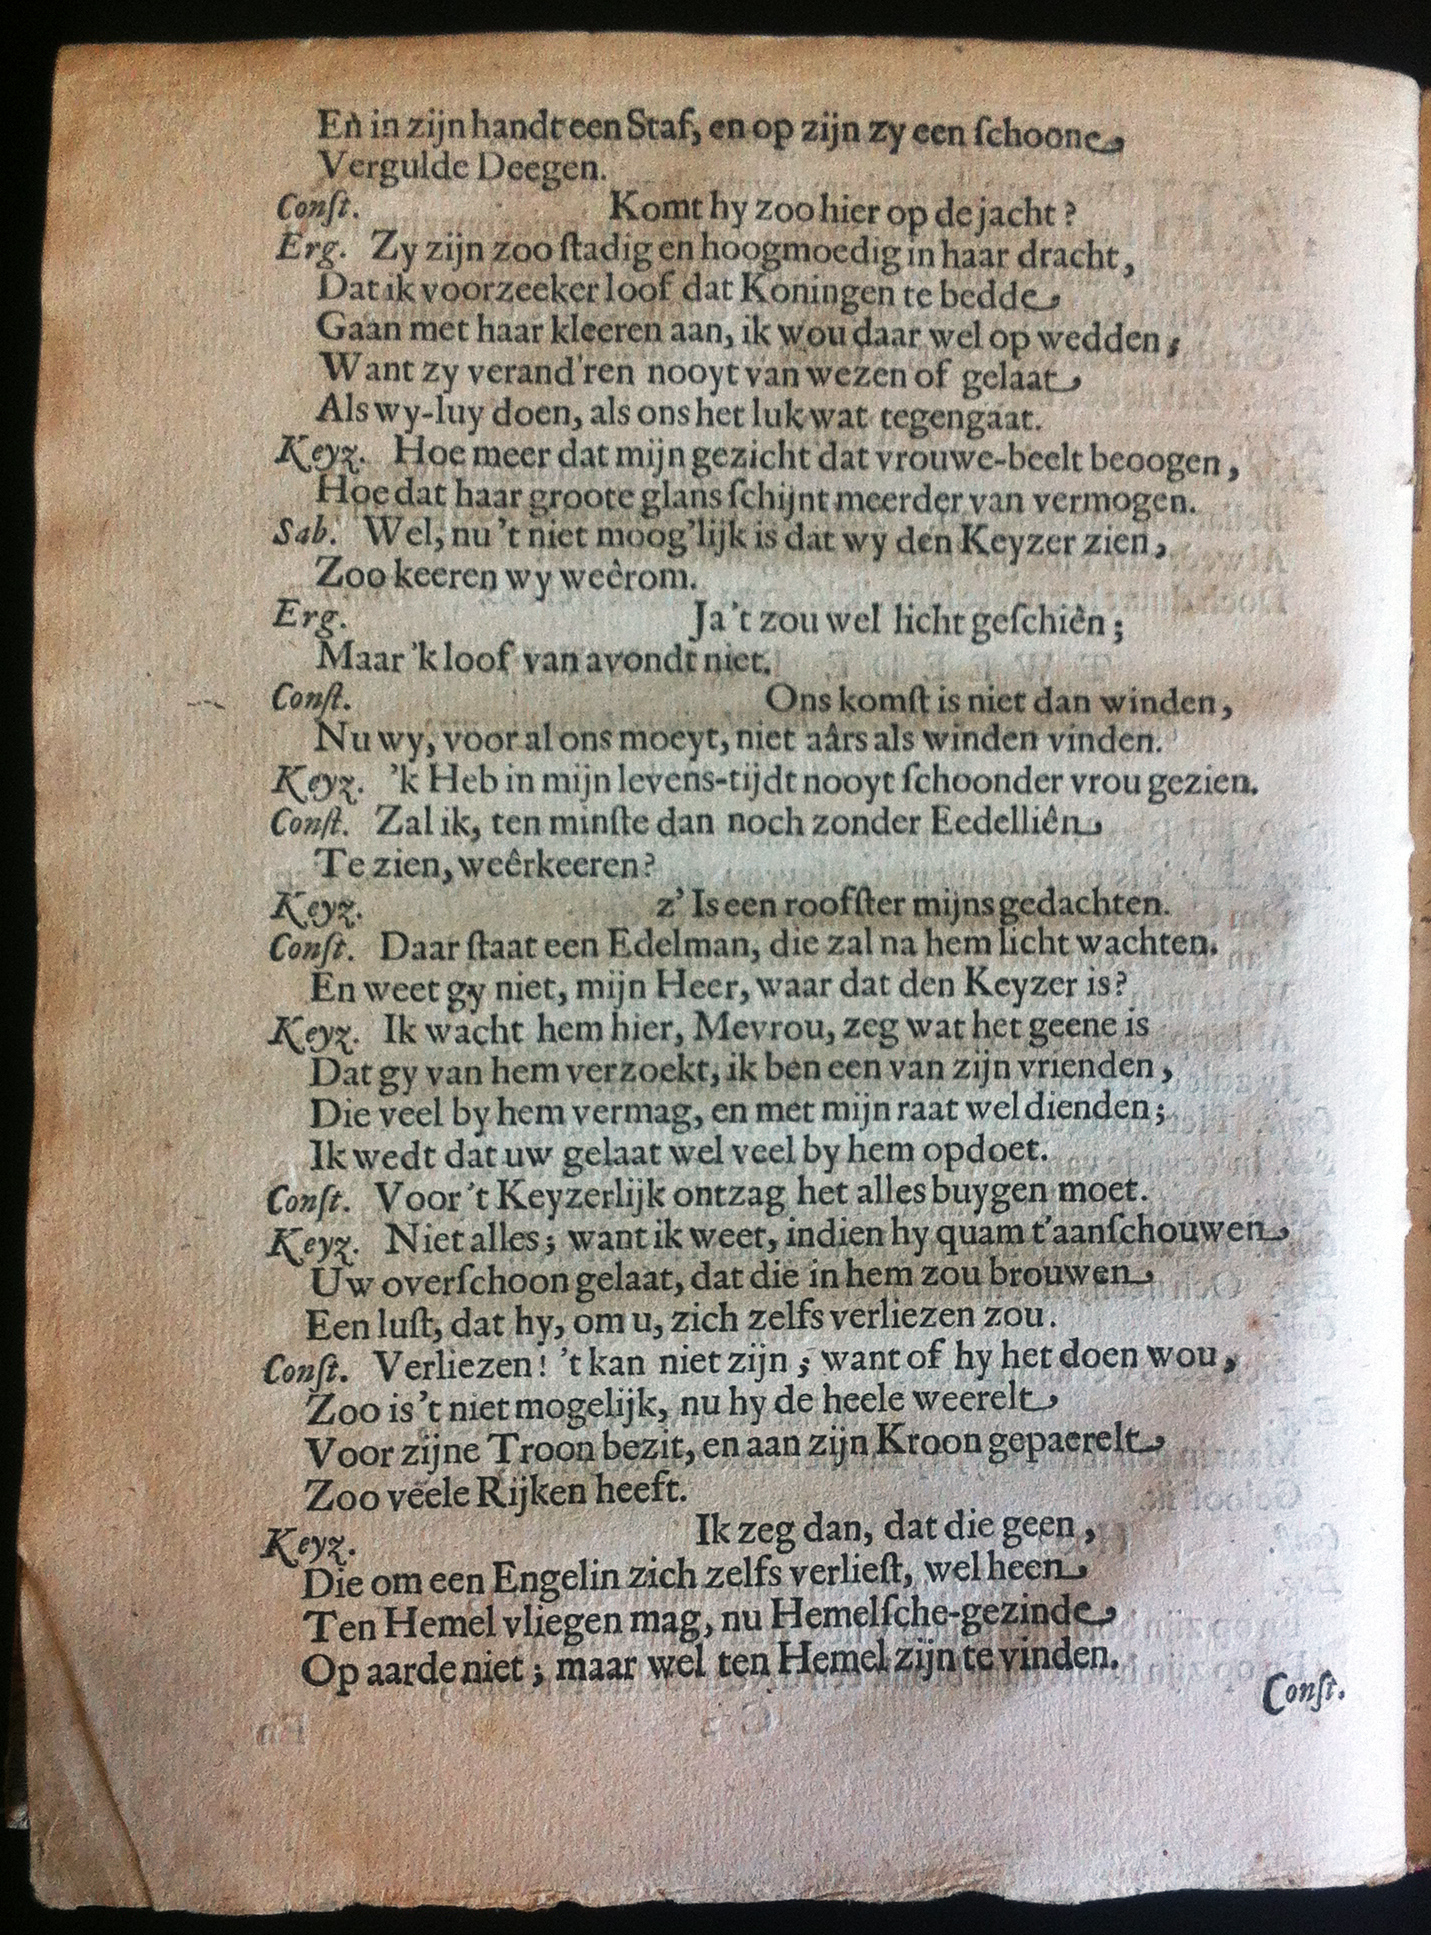 En in zijn handt een Staf, en op zijn zy een ſchoone
Vergulde Deegen.
Conſt. Komt hy zoo hier op de jacht?
Erg. Zy zijn zoo ſtadig en hoogmoedig in haar dracht,
Dat ik voorzeeker loof dat Koningen te bedde
Gaan met haar kleeren aan, ik wou daar wel op wedden;
Want zy verand'ren nooyt van wezen of gelaat
Als wy-luy doen, als ons het luk wat tegengaat.
Keyz. Hoe meer dat mijn gezicht dat vrouwe-beelt beoogen,
Hoe dat haar groote glans ſchijnt meerder van vermogen.
Sab. Wel, nu 't niet moog'lijk is dat wy den Keyzer zien,
Zoo keeren wy weêrom.
Erg. Ja 't zou wel licht geſchiên;
Maar 'k loof van avondt niet.
Conſt. Ons komſt is niet dan winden,
Nu wy, voor al ons moeyt, niet aârs als winden vinden.
Keyz. 'k Heb in mijn levens-tijdt nooyt ſchoonder vrou gezien.
Conſt. Zal ik, ten minſte dan noch zonder Eedelliên
Te zien, weêrkeeren?
Keyz. z' Is een roofſter mijns gedachten.
Conſt. Daar ſtaat een Edelman, die zal na hem licht wachten.
En weet gy niet, mijn Heer, waar dat den Keyzer is?
Keyz. Ik wacht hem hier, Mevrou, zeg wat het geene is
Dat gy van hem verzoekt, ik ben een van zijn vrienden,
Die veel by hem vermag, en met mijn raat wel dienden;
Ik wedt dat uw gelaat wel veel by hem opdoet.
Conſt. Voor 't Keyzerlijk ontzag het alles buygen moet.
Keyz. Niet alles; want ik weet, indien hy quam t'aanſchouwen
Uw overſchoon gelaat, dat die in hem zou brouwen
Een luſt, dat hy, om u, zich zelfs verliezen zou.
Conſt. Verliezen! 't kan niet zijn; want of hy het doen wou,
Zoo is 't niet mogelijk, nu hy de heele weerelt
Voor zijne Troon bezit, en aan zijn Kroon gepaerelt
Zoo veele Rijken heeft.
Keyz. Ik zeg dan, dat die geen,
Die om een Engelin zich zelfs verlieſt, wel heen
Ten Hemel vliegen mag, nu Hemelſche-gezinde
Op aarde niet; maar wel ten Hemel zijn te vinden.
Conſt.